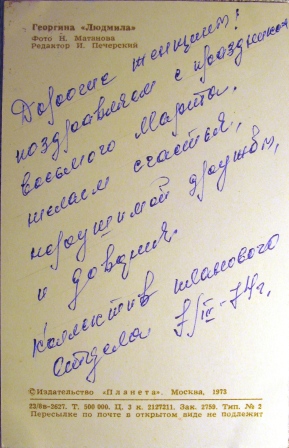 Георгина «Людмила»
Фото Н. Матанова
Редактор И. Печерский
Дорогие женщины!
поздравляем с праздником
восьмого Марта.
желаем счастья,
нерушимой дружбы,
и доверия.
Коллектив планового
отдела 7/III-74г.
©Издательство «Планета». Москва, 1973
23/бв-5627. Т. 500 000. Ц. 3 к. 2127211. Зак. 2759. Тип. № 2
Пересылке по почте в открытом виде не подлежит